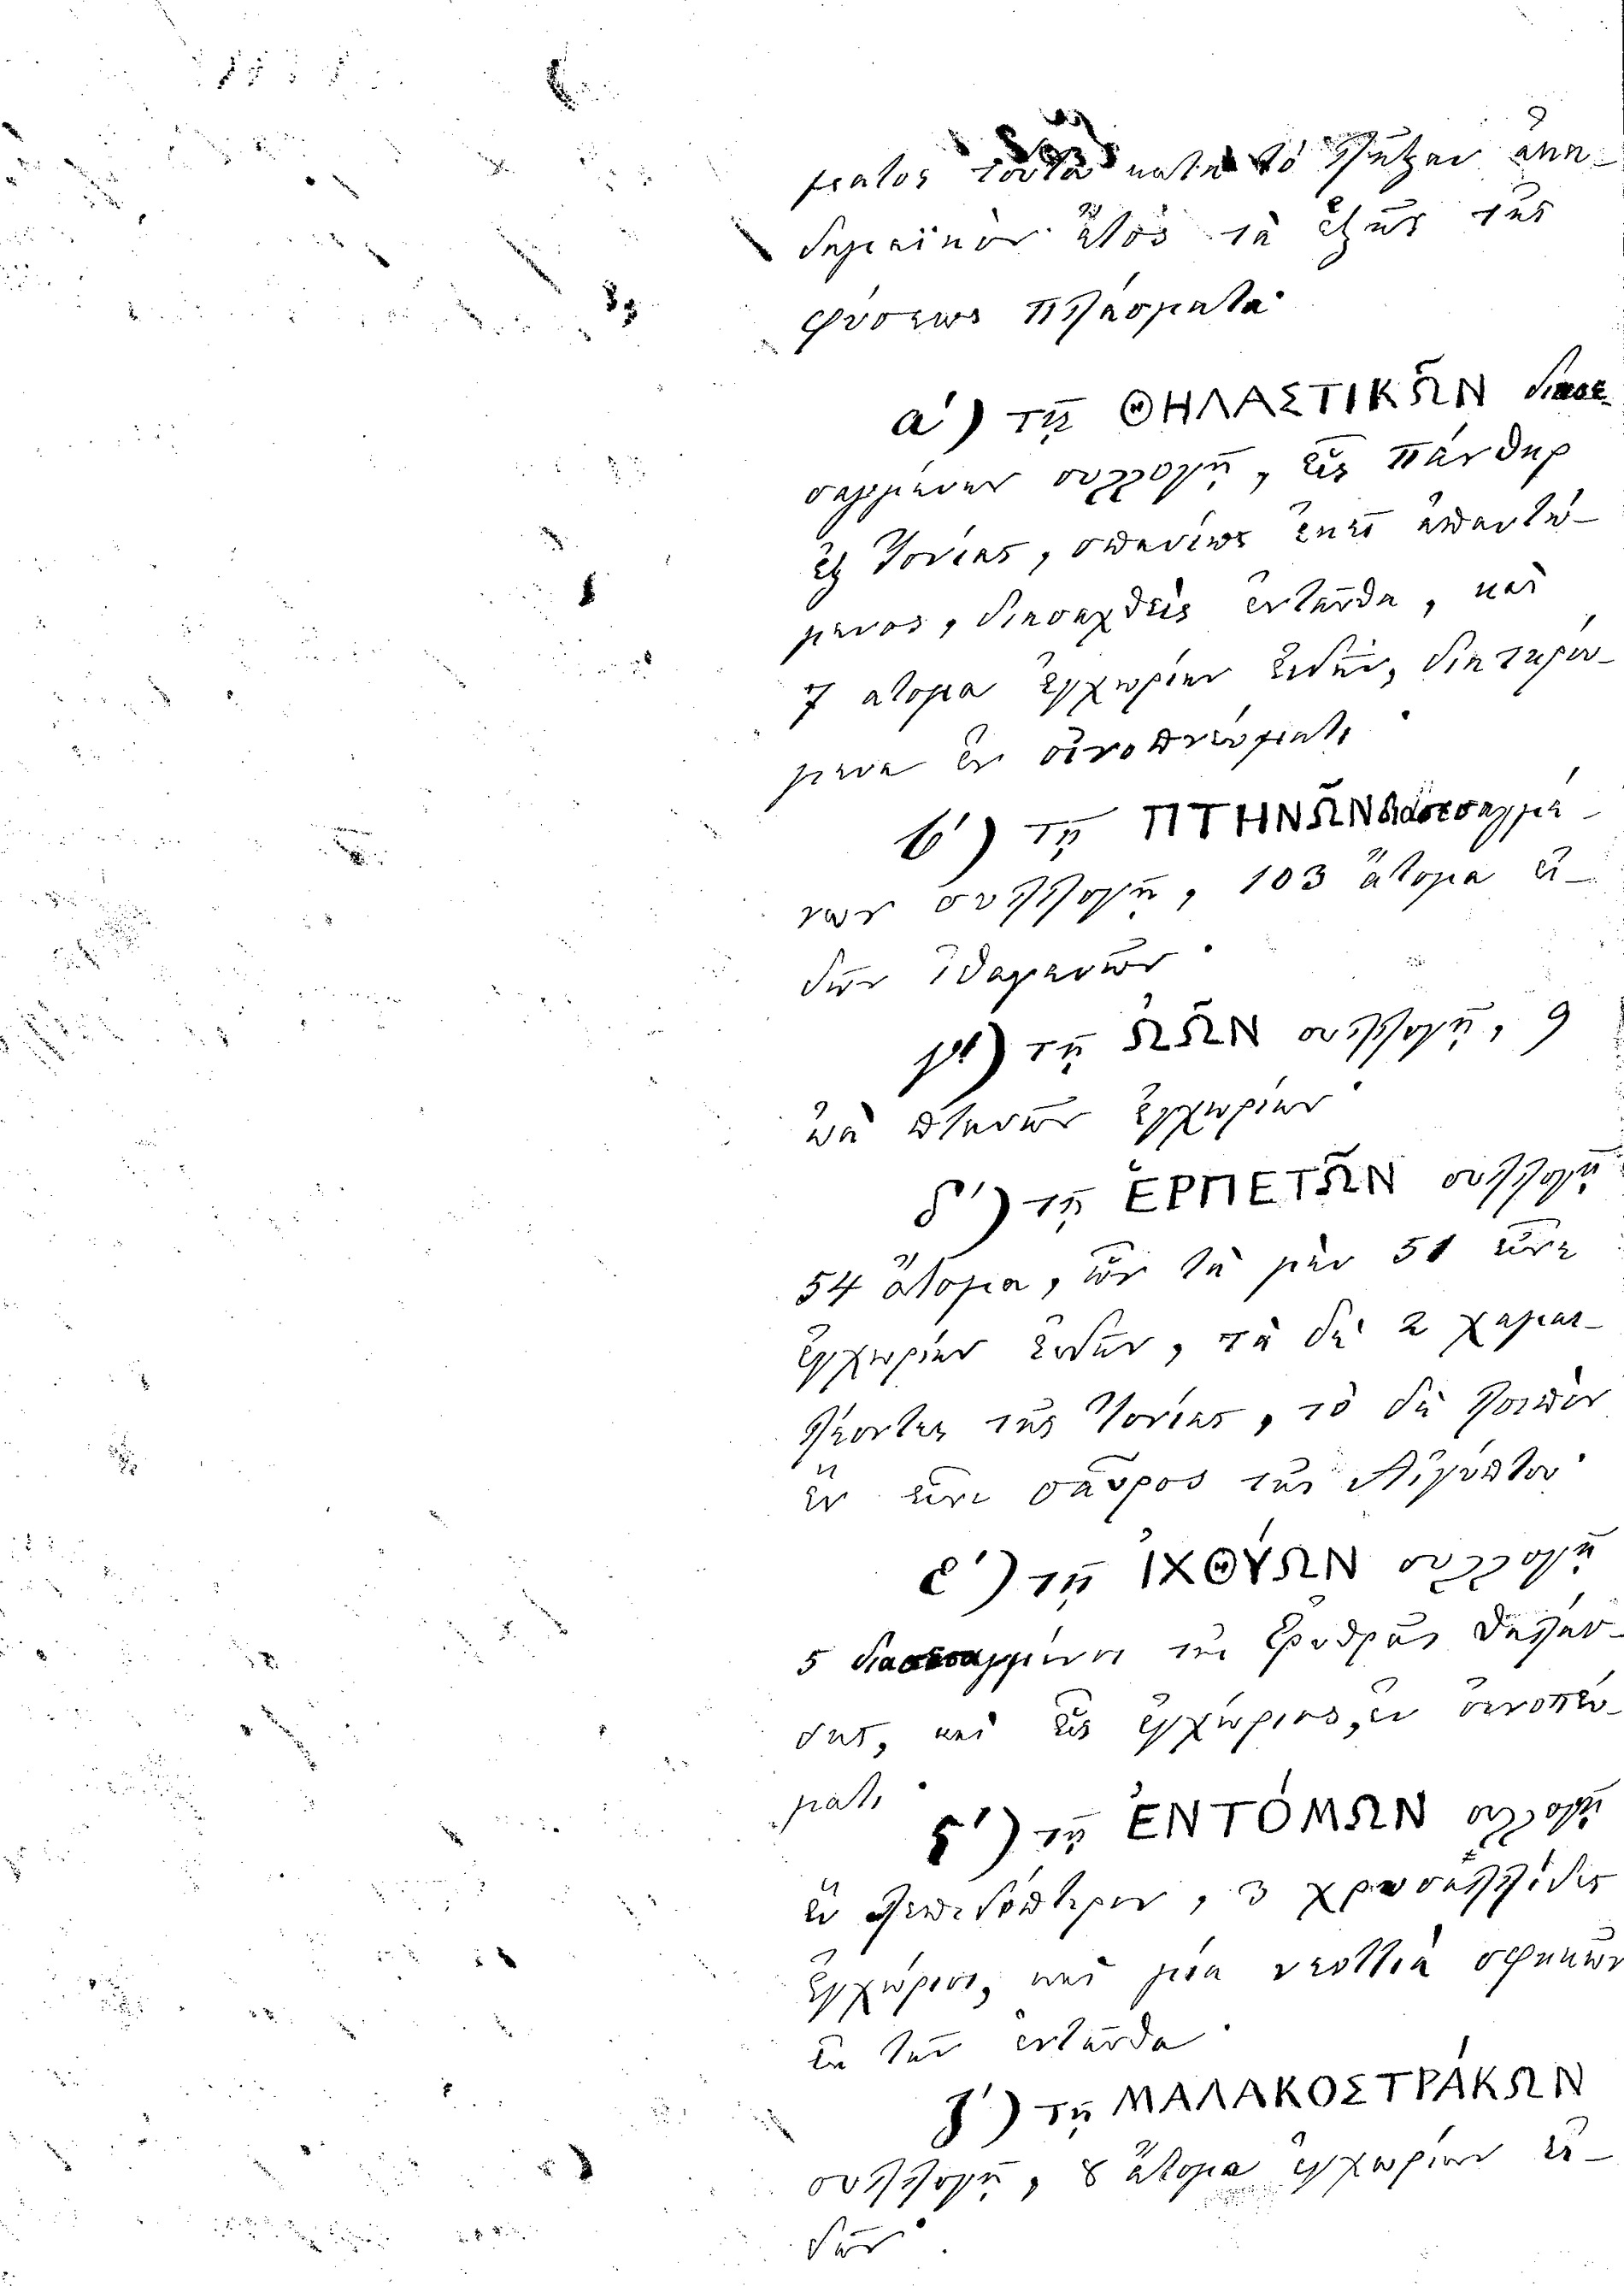 ματος τοῦτο κατὰ τὸ λῆξαν ἀκα-
δημαϊκὸν ἔτος τὰ ἑξῆς τῆς
φύσεως πλάσματα·
α΄) τῇ ΘΗΛΑΣΤΙΚΩ͂Ν διασε-
σαγμένων συλλογῇ, εἷς πάνθηρ
ἐξ Ἰονίας, σπανίως ἐκεῖ ἀπαντώ-
μενος, διασαχθεὶς ἐνταῦθα, καὶ
7 ατομα ἐγχωρίων εἰδῶν, διατηρού-
μενα ἐν οἰνοπνεύματι·
β΄) τῇ ΠΤΗΝΩ͂Ν διασεσαγμέ-
νων συλλογῇ, 103 ἄτομα εἰ-
δῶν ἰθαγενῶν·
γ΄) τῇ ὨΩ͂Ν συλλογῇ, 9
ὠὰ πτηνῶν ἐγχωρίων·
δ΄) τῇ ἙΡΠΕΤΩ͂Ν συλλογῇ
54 ἄτομα, ὧν τὰ μὲν 51 εἶνε
ἐγχωρίων εἰδῶν, τὰ δὲ 2 χαμαι-
λέοντες τῆς Ἰονίας, τὸ δὲ λοιπὸν
ἓν εἶνε σαῦρος τῆς Αἰγύπτου·
ε΄) τῇ ἸΧΘΎΩΝ συλλογῇ
5 διασεσαγμένοι τῆς Ἐρυθρᾶς θαλάσ-
σης, καὶ εἷς ἐγχώριος, ἐν οἰνοπεύ-
ματι·
ϛ΄) τῇ ἘΝΤΌΜΩΝ συλλογῇ
ἓν λεπιδόπτερον, 3 χρυσαλλίδες
ἐγχώριοι, καὶ μία νεοττιὰ σφηκῶν
ἐκ τῶν ἐνταῦθα·
ζ΄) τῇ ΜΑΛΑΚΟΣΤΡΆΚΩΝ
συλλογῇ, 8 ἄτομα ἐγχωρίων εἰ-
δῶν·